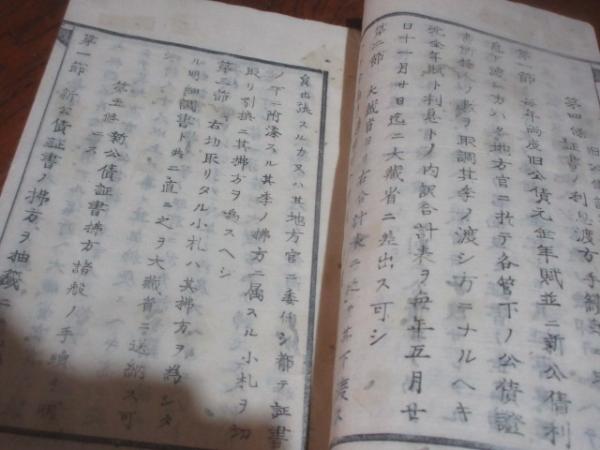 第四条 旧公債
証書ノ利息渡方手続
第一節 毎年両度旧公債元金年賦並ニ新公債利
地方官ニ於テ各管下ノ公債證
書ヲ取調其季ノ渡シ方ニナルヘキ
元金年賦ト利息トノ内訳合計表ヲ毎年五月廿
日十一月廿日迄ニ大蔵省ニ差出ス可シ
第二節 大蔵省ハ右合計表ニ
出張スルカ又ハ其地方官ニ委任シ都テ証書
ノ下ニ附添スル其季ノ拂方ニ属スル小札ヲ切
取リ引換ニ其拂方ヲ為スヘシ
第三節 右切取リタル小札ハ其拂方ヲ為シタ
ル明細調書ト共ニ直ニ之ヲ大蔵省ニ送納ス可
第五條 新公債証書拂方諸般ノ手順
第一節 新公債証書ノ拂方ヲ抽籤ニ